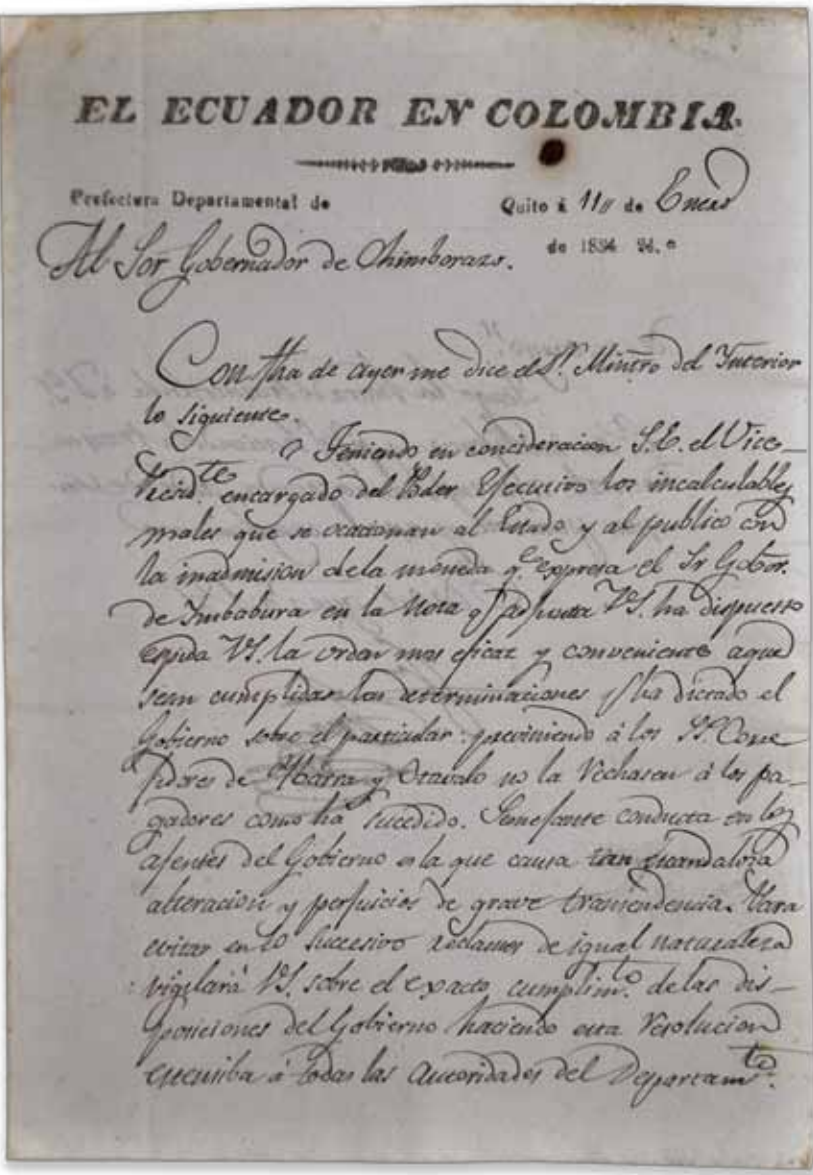 EL ECUADOR EN COLOMBIA.
Prefectura Departamental de
Quito á 11 de Enero
de 1834 24.º
Al Sor Gobernador de Chimborazo.
Con fha de ayer me dice el Sr. Mintro del Interior
lo siguiente.
Teniendo en concideracion S.E. el Vice-
Presidte encargado del Poder Ejecutivo los incalculables
males que se ocacionan al Estado y al publico con
la inadmision dela moneda qe. expresa el Sr Gobor.
de Imbabura en la Nota q. adjunta VS. ha dispuesto
expida VS. la orden mas eficaz y conveniente aque
sean cumplidas las determinaciones q. ha dictado el
Gobierno sobre el particular: previniendo á los SS. Corre
jidores de Ybarra y Otavalo no la rechasen á los pa-
gadores como ha sucedido. Semejante conducta en los
ajentes del Gobierno es la que causa tan escandalosa
alteracion y perjuicios de grave tramendencia. Para
evitar en lo succesivo reclamos de igual naturaleza
vigilará VS. sobre el exacto cumplimto. de las dis-
posiciones del Gobierno haciendo esta resolucion
extensiba á todas las autoridades del Departamto.